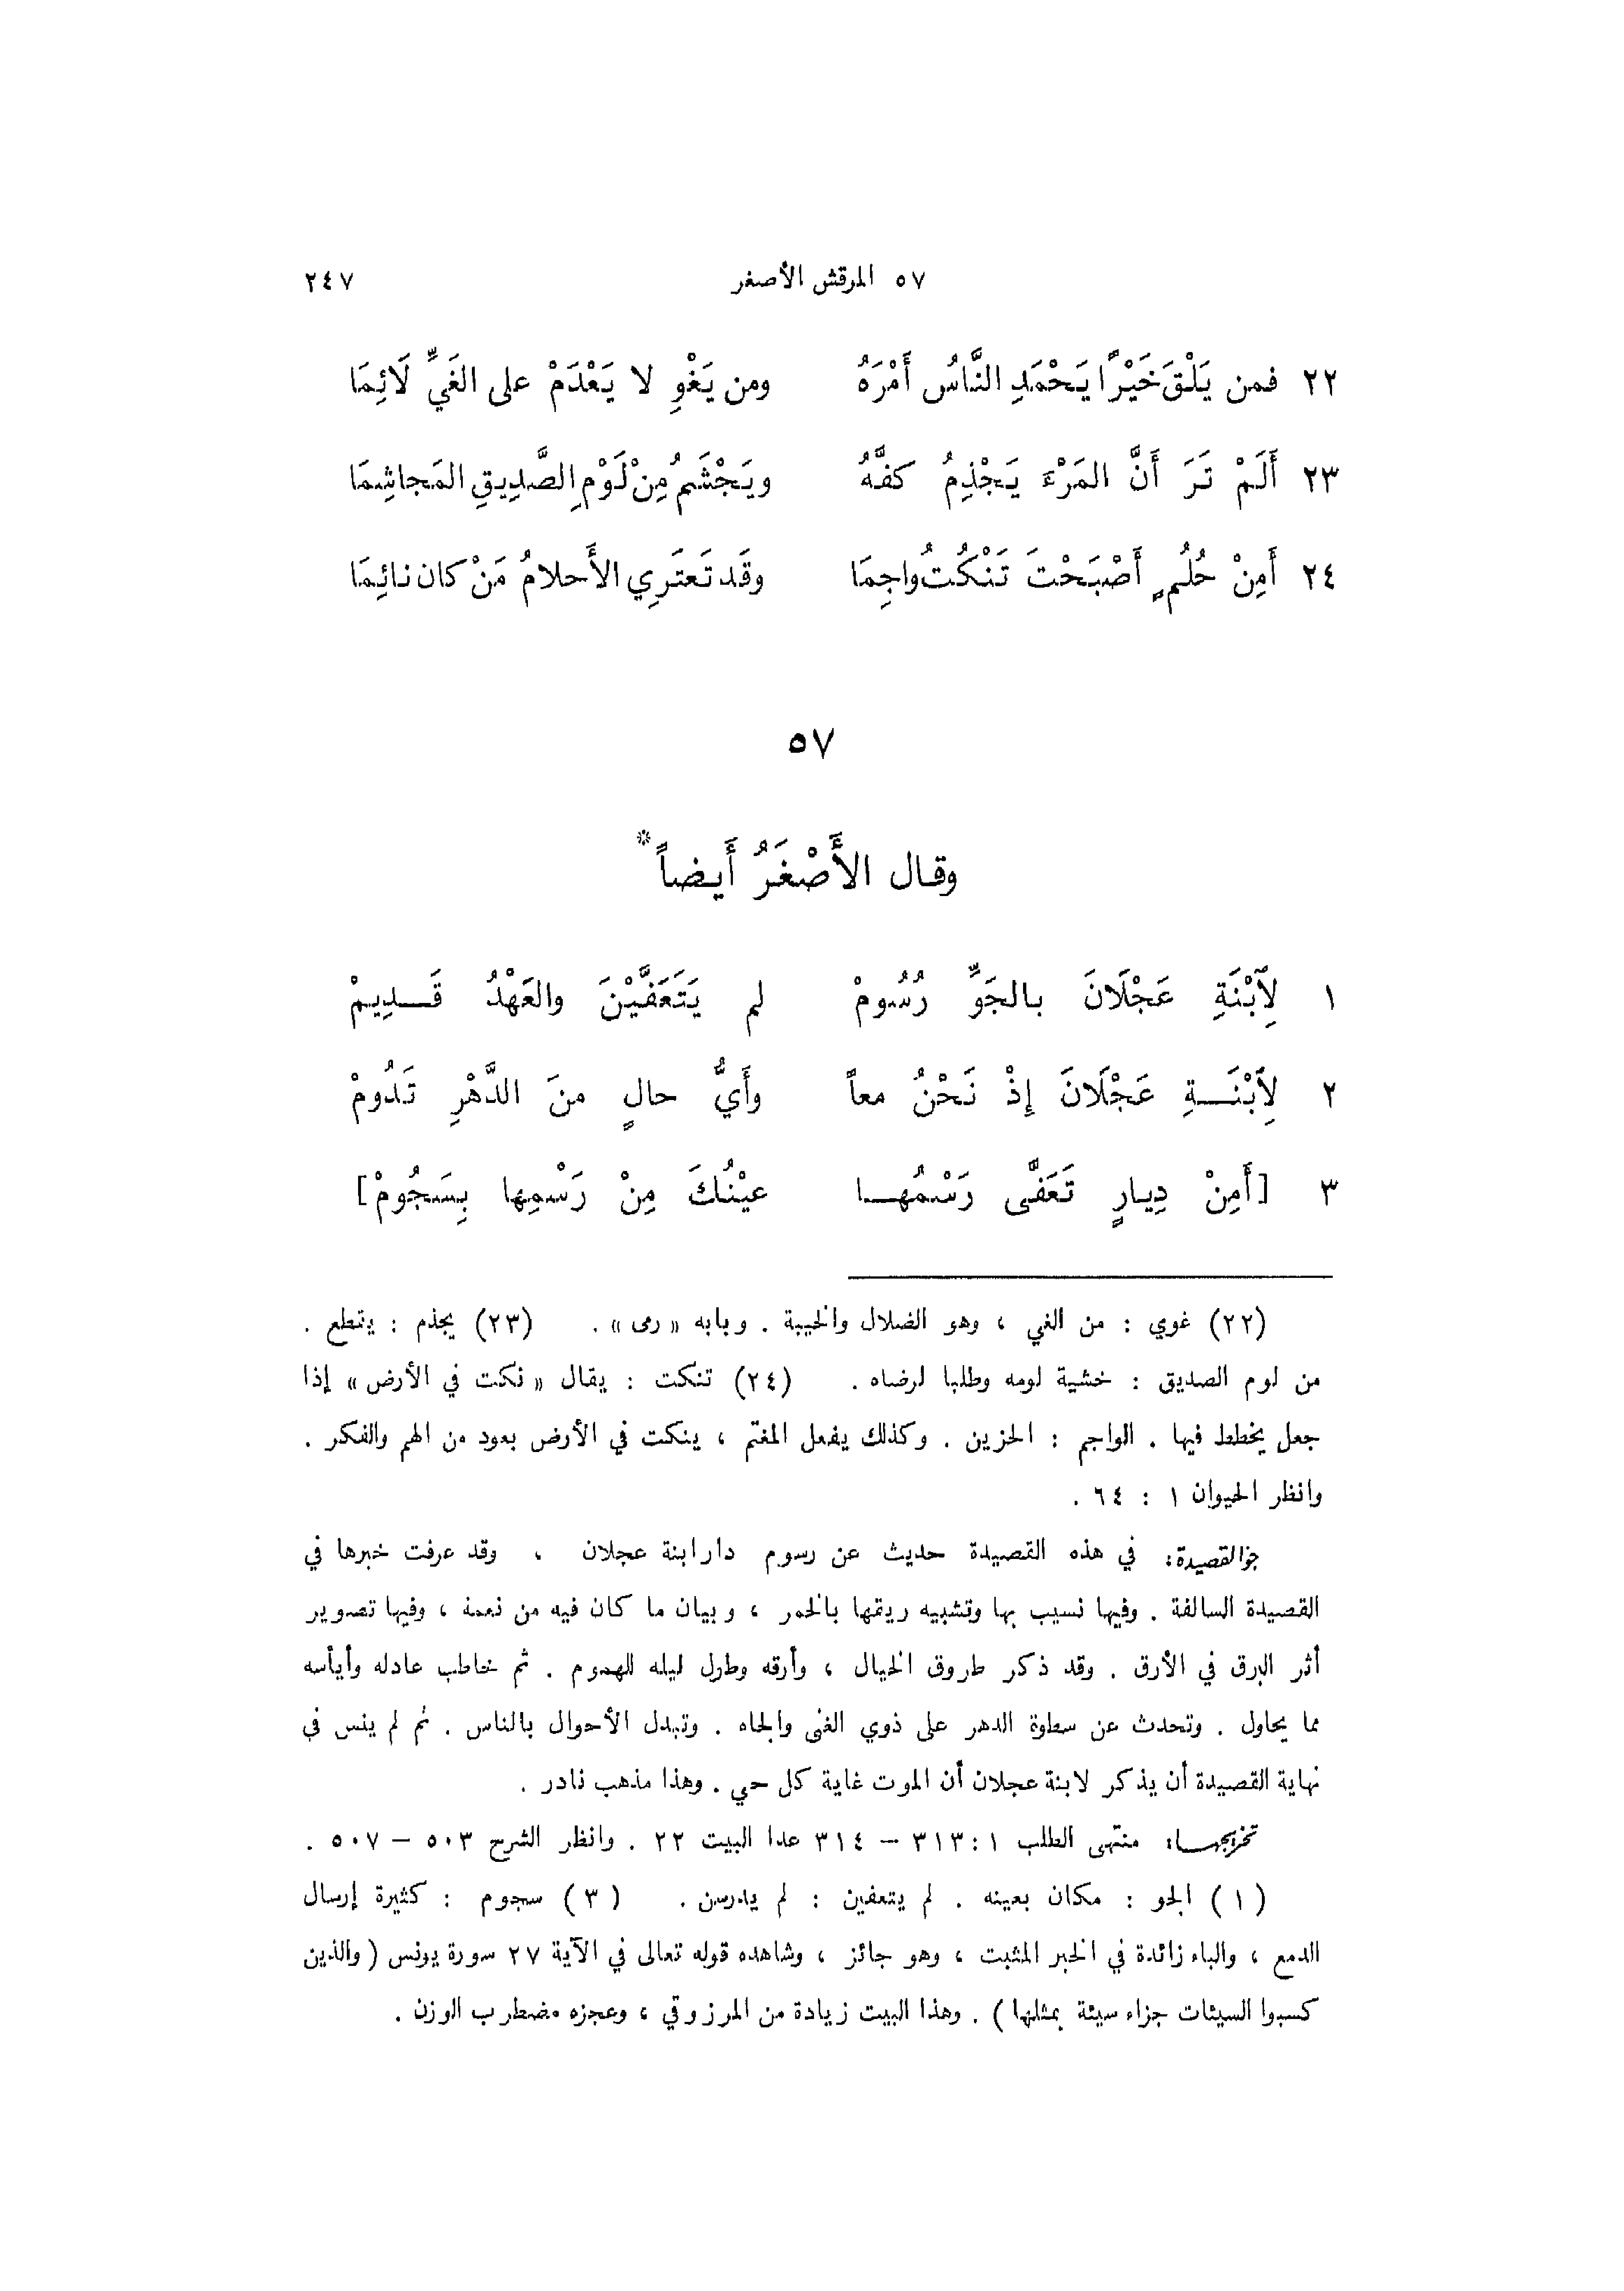 ٥٧ المرقش الأصغر ٢٤٧
٢٢ فمن يَلْقَ خَيْرًا يَحْمَدِ النَّاسُ أَمْرَهُ ومن يَغْوِ لا يَعْدَمْ على الغَيِّ لَائِمَا
٢٣ أَلَمْ تَرَ أَنَّ المَرْءَ يَجْذِمُ كفَّهُ ويَجْشَمُ مِنْ لَوْمِ الصَّدِيقِ المَجاشِمَا
٢٤ أَمِنْ حُلُمٍ أَصْبَحْتَ تَنْكُتُ واجِمَا وقَد تَعتَرِي الأَحلامُ مَنْ كان نائِمَا
٥٧
وقال الأَصْغَرُ أَيضاً*
١ لِآبْنَةِ عَجْلَانَ بالجَوِّ رُسُومْ لم يَتَعَفَّيْنَ والعَهْدُ قَـدِيمْ
٢ لِآبْنَـةِ عَجْلَانَ إِذْ نَحْنُ معاً وأَيُّ حالٍ منَ الدَّهْرِ تَدُومْ
٣ [أَمِنْ دِيارٍ تَعَفَّى رَسْمُهـا عيْنُكَ مِنْ رَسْمِها بِسَجُومْ]
(٢٢) غوي : من الغي ، وهو الضلال والخيبة . وبابه « رمى » . (٢٣) يجذم : يقطع .
من لوم الصديق : خشية لومه وطلبا لرضاه . (٢٤) تنكت : يقال « نكت في الأرض » إذا
جعل يخطط فيها . الواجم : الحزين . وكذلك يفعل المغتم ، ينكت في الأرض بعود من الهم والفكر .
وانظر الحيوان ١ : ٦٤ .
جو القصيدة: في هذه القصيدة حديث عن رسوم دار ابنة عجلان ، وقد عرفت خبرها في
القصيدة السالفة . وفيها نسيب بها وتشبيه ريقها بالخمر ، وبيان ما كان فيه من نعمة ، وفيها تصوير
أثر البرق في الأرق . وقد ذكر طروق الخيال ، وأرقه وطول ليله للهموم . ثم خاطب عاذله وأيأسه
مما يحاول . وتحدث عن سطوة الدهر على ذوي الغنى والجاه . وتبدل الأحوال بالناس . ثم لم ينس في
نهاية القصيدة أن يذكر لابنة عجلان أن الموت غاية كل حي . وهذا مذهب نادر .
تخريجهـا: منتهى الطلب ١ : ٣١٣ – ٣١٤ عدا البيت ٢٢ . وانظر الشرح ٥٠٣ – ٥٠٧ .
( ١ ) الجو : مكان بعينه . لم يتعفين : لم يدرسن . ( ٣ ) سجوم : كثيرة إرسال
الدمع ، والباء زائدة في الخبر المثبت ، وهو جائز ، وشاهده قوله تعالى في الآية ٢٧ سورة يونس ( والذين
كسبوا السيئات جزاء سيئة بمثلها ) . وهذا البيت زيادة من المرزوقي ، وعجزه مضطرب الوزن .